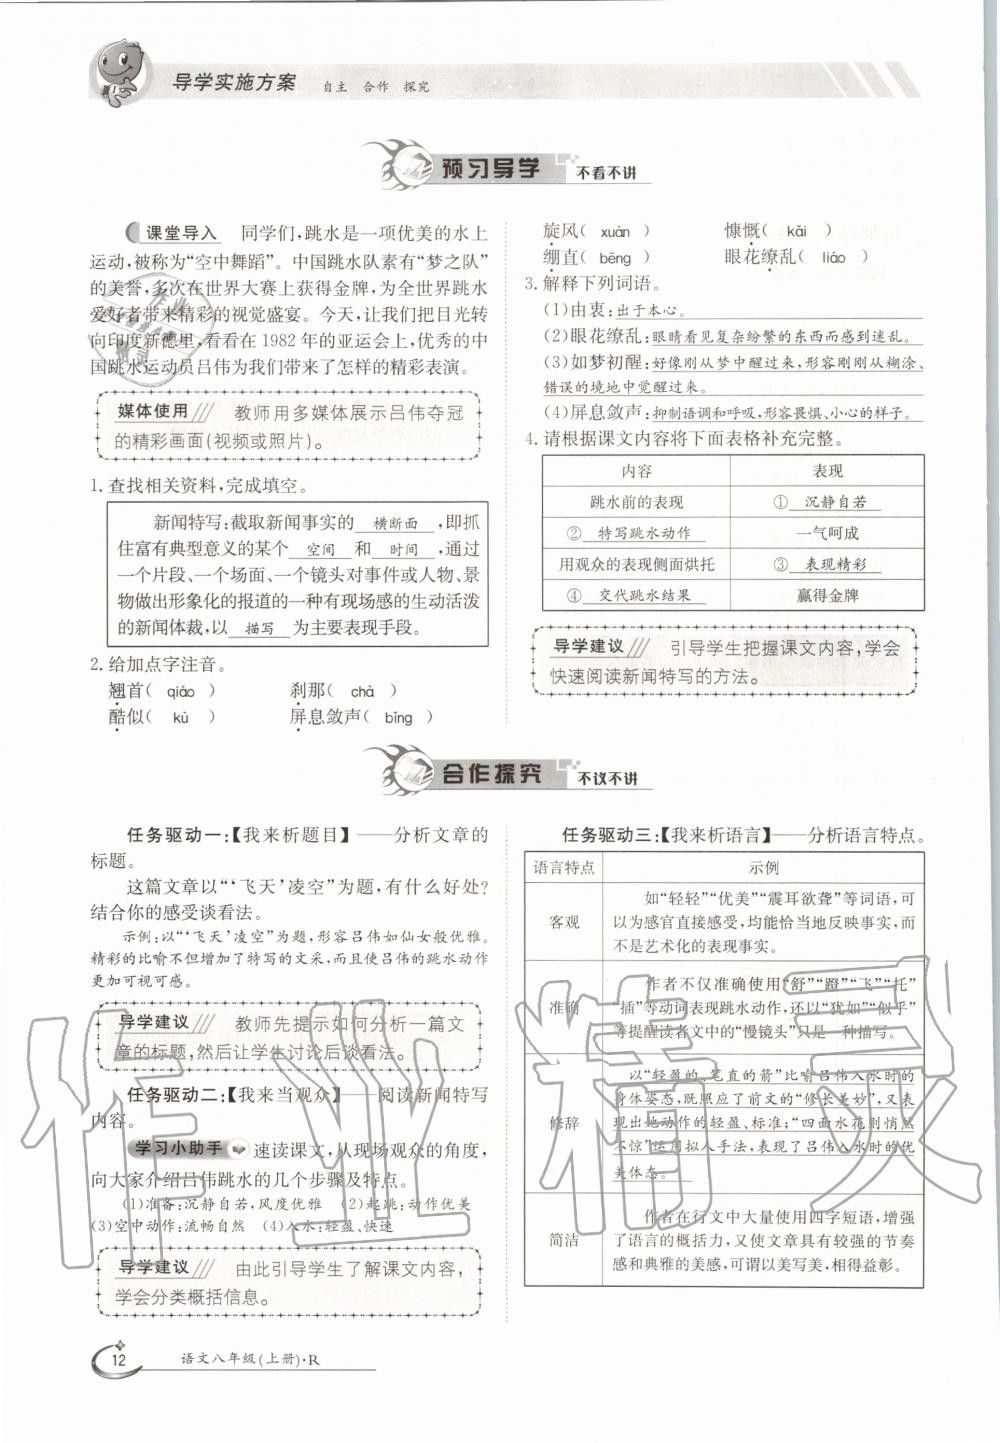 导学实施方案 自主 合作 探究
预习导学 不看不讲
课堂导入 同学们,跳水是一项优美的水上
运动,被称为“空中舞蹈”。中国跳水队素有“梦之队”
的美誉,多次在世界大赛上获得金牌,为全世界跳水
爱好者带来精彩的视觉盛宴。今天,让我们把目光转
向印度新德里,看看在 1982 年的亚运会上,优秀的中
国跳水运动员吕伟为我们带来了怎样的精彩表演。
媒体使用 教师用多媒体展示吕伟夺冠
的精彩画面(视频或照片)。
1. 查找相关资料,完成填空。
新闻特写:截取新闻事实的 横断面 ,即抓
住富有典型意义的某个 空间 和 时间 ,通过
一个片段、一个场面、一个镜头对事件或人物、景
物做出形象化的报道的一种有现场感的生动活泼
的新闻体裁,以 描写 为主要表现手段。
2. 给加点字注音。
翘首( qiáo ) 刹那( chà )
酷似( kù ) 屏息敛声( bǐng )
旋风( xuàn ) 慷慨( kǎi )
绷直( bēng ) 眼花缭乱( liáo )
3. 解释下列词语。
(1)由衷:出于本心。
(2)眼花缭乱:眼睛看见复杂纷繁的东西而感到迷乱。
(3)如梦初醒:好像刚从梦中醒过来,形容刚刚从糊涂、
错误的境地中觉醒过来。
(4)屏息敛声:抑制语调和呼吸,形容畏惧、小心的样子。
4. 请根据课文内容将下面表格补充完整。
内容 表现
跳水前的表现 ① 沉静自若
② 特写跳水动作 一气呵成
用观众的表现侧面烘托 ③ 表现精彩
④ 交代跳水结果 赢得金牌
导学建议 引导学生把握课文内容,学会
快速阅读新闻特写的方法。
合作探究 不议不讲
任务驱动一:【我来析题目】——分析文章的
标题。
这篇文章以“‘飞天’凌空”为题,有什么好处?
结合你的感受谈看法。
示例:以“‘飞天’凌空”为题,形容吕伟如仙女般优雅。
精彩的比喻不但增加了特写的文采,而且使吕伟的跳水动作
更加可视可感。
导学建议 教师先提示如何分析一篇文
章的标题,然后让学生讨论后谈看法。
任务驱动二:【我来当观众】——阅读新闻特写
内容。
学习小助手 速读课文,从现场观众的角度,
向大家介绍吕伟跳水的几个步骤及特点。
(1)准备:沉静自若,风度优雅 (2)起跳:动作优美
(3)空中动作:流畅自然 (4)入水:轻盈、快速
导学建议 由此引导学生了解课文内容,
学会分类概括信息。
任务驱动三:【我来析语言】——分析语言特点。
语言特点 示例
客观 如“轻轻”“优美”“震耳欲聋”等词语,可
以为感官直接感受,均能恰当地反映事实,而
不是艺术化的表现事实。
准确 作者不仅准确使用“舒”“蹬”“飞”“托”
“插”等动词表现跳水动作,还以“犹如”“似乎”
等提醒读者文中的“慢镜头”只是一种描写。
修辞 以“轻盈的、笔直的箭”比喻吕伟入水时的
身体姿态,既照应了前文的“修长美妙”,又表
现出她动作的轻盈、标准;“四面水花则悄然
不惊”运用拟人手法,表现了吕伟入水时的优
美体态。
简洁 作者在行文中大量使用四字短语,增强
了语言的概括力,又使文章具有较强的节奏
感和典雅的美感,可谓以美写美,相得益彰。
12 语文八年级(上册)·R
作业精灵